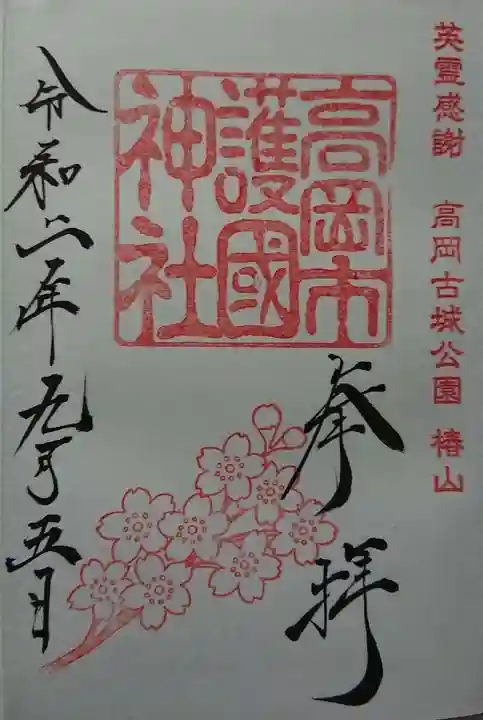 英霊感謝 高岡古城公園 椿山
高岡市
護國
神社
奉拝
令和二年九月五日